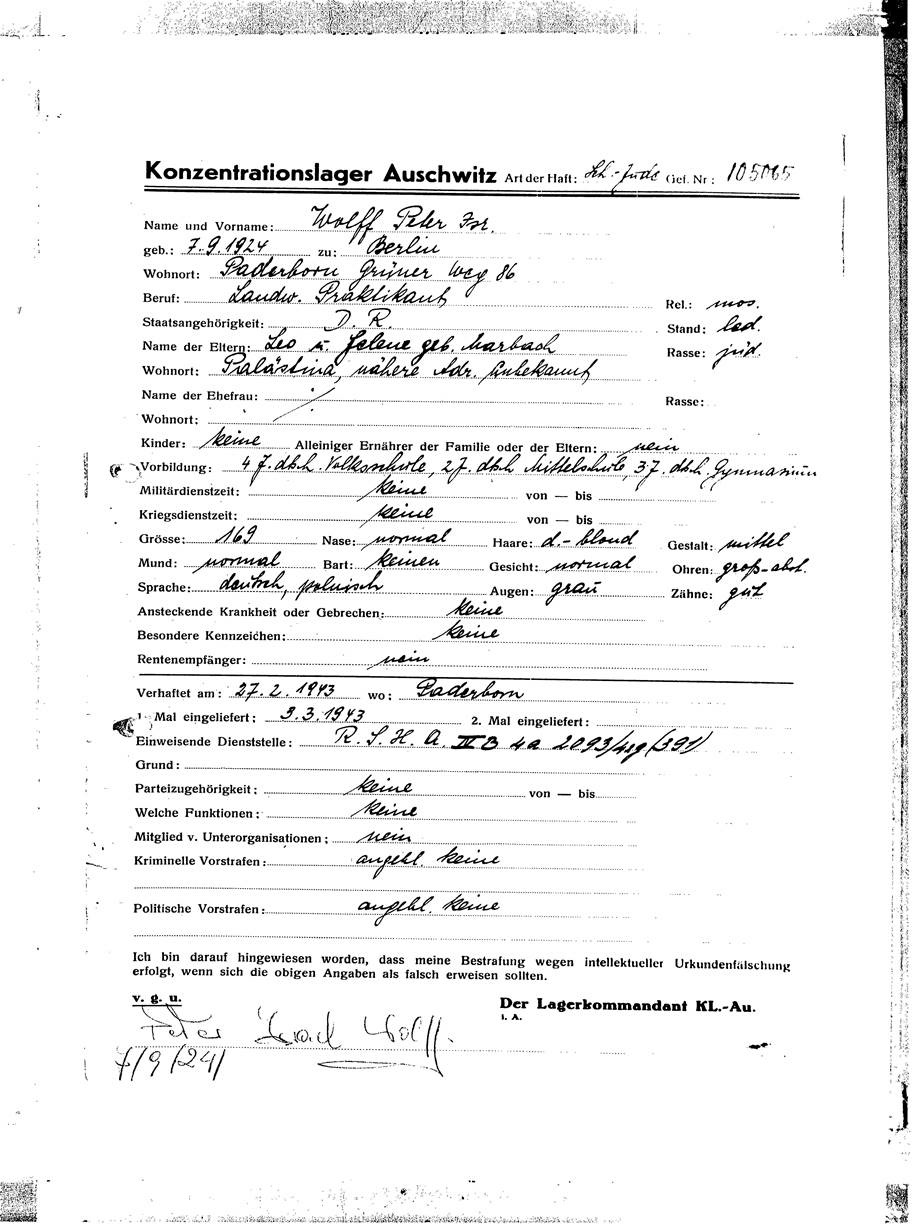 Konzentrationslager Auschwitz Art der Haft: Sch.-Jude Gef. Nr.: 105065
Name und Vorname: Wolff Peter Isr.
geb.: 7.9.1924 zu: Berlin
Wohnort: Paderborn Grüner Weg 86
Beruf: Landw. Praktikant Rel.: mos.
Staatsangehörigkeit: D. R. Stand: led.
Name der Eltern: Leo u. Helene geb. Marbach Rasse: jüd.
Wohnort: Palästina, nähere Adr. unbekannt
Name der Ehefrau: Rasse:
Wohnort:
Kinder: keine Alleiniger Ernährer der Familie oder der Eltern: nein
Vorbildung: 4 J. dtsch. Volksschule, 2 J. dtsch. Mittelschule, 3 J. dtsch. Gymnasium
Militärdienstzeit: keine von — bis
Kriegsdienstzeit: keine von — bis
Grösse: 169 Nase: normal Haare: d.-blond Gestalt: mittel
Mund: normal Bart: keinen Gesicht: normal Ohren: groß-abst.
Sprache: deutsch, polnisch Augen: grau Zähne: gut
Ansteckende Krankheit oder Gebrechen: keine
Besondere Kennzeichen: keine
Rentenempfänger: nein
Verhaftet am: 27.2.1943 wo: Paderborn
1. Mal eingeliefert: 3.3.1943 2. Mal eingeliefert:
Einweisende Dienststelle: R. S. H. A. IV B 4a 2093/42g (391)
Grund:
Parteizugehörigkeit: keine von — bis
Welche Funktionen: keine
Mitglied v. Unterorganisationen: nein
Kriminelle Vorstrafen: angebl. keine
Politische Vorstrafen: angebl. keine
Ich bin darauf hingewiesen worden, dass meine Bestrafung wegen intellektueller Urkundenfälschung
erfolgt, wenn sich die obigen Angaben als falsch erweisen sollten.
v. g. u. Der Lagerkommandant KL.-Au.
i. A.
Peter Israel Wolff.
7/9/24/